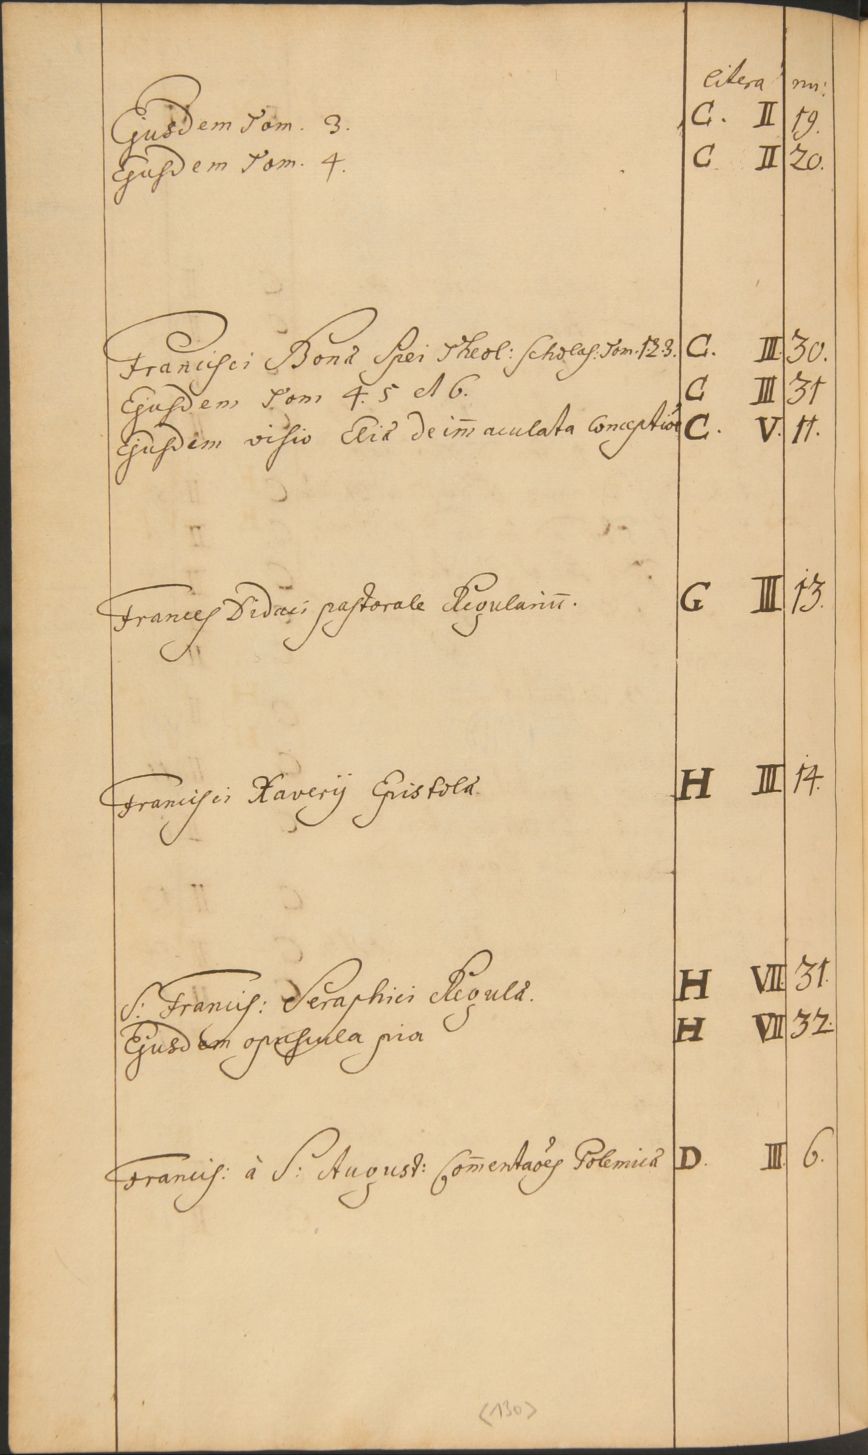 litera nu:
Ejusdem Tom. 3. C. II 19.
Ejusdem Tom. 4. C II 20.
Francisci Bonæ Spei Theol: scholas: Tom. 1 2 3. C. III. 30.
Ejusdem Tom 4. 5 et 6. C III 31
Ejusdem visio Eliæ de im̄aculata Conceptiōe C. V. 11.
Frances Didaci pastorale Regulariū. G III 13.
Francisci Xaverij Epistolæ. H III 14.
S: Francis: Seraphici Regulæ. H VII 31.
Ejusdem opuscula pia H VII 32.
Francis: à S: August: Com̄entaōes Polemicæ D. III. 6.
<130>